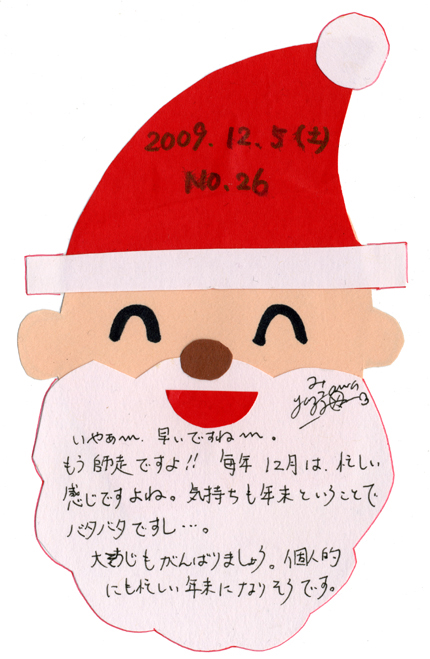 2009.12.5(土)
No.26
いやぁm、早いですねm。
もう師走ですよ!! 毎年12月は、忙しい
感じですよね。気持ちも年末ということで
バタバタですし…。
大そうじもがんばりましょう。個人的
にも忙しい年末になりそうです。